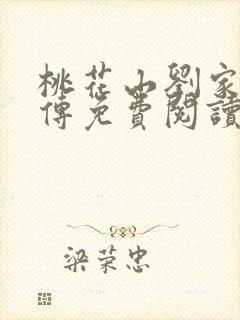 桃花山劉家
傳免費閱讀
梁荣忠